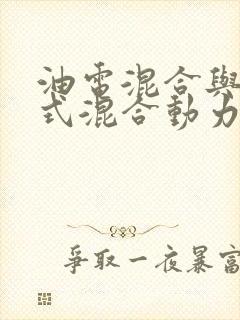 油電混合與
式混合動力
爭取一夜暴富